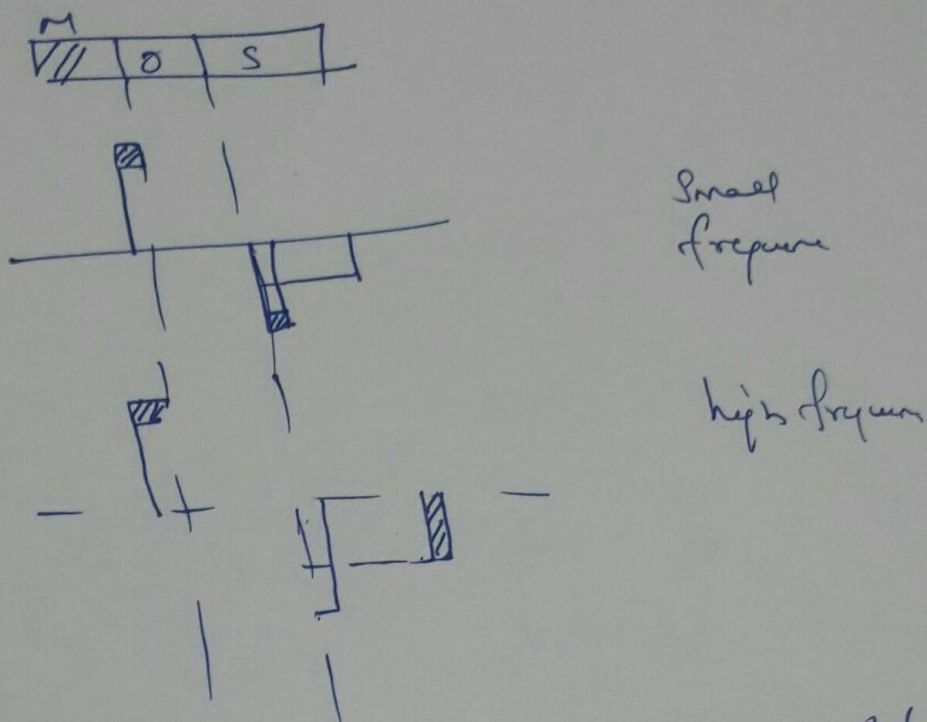 M
O S
Small
frequen
high frequen